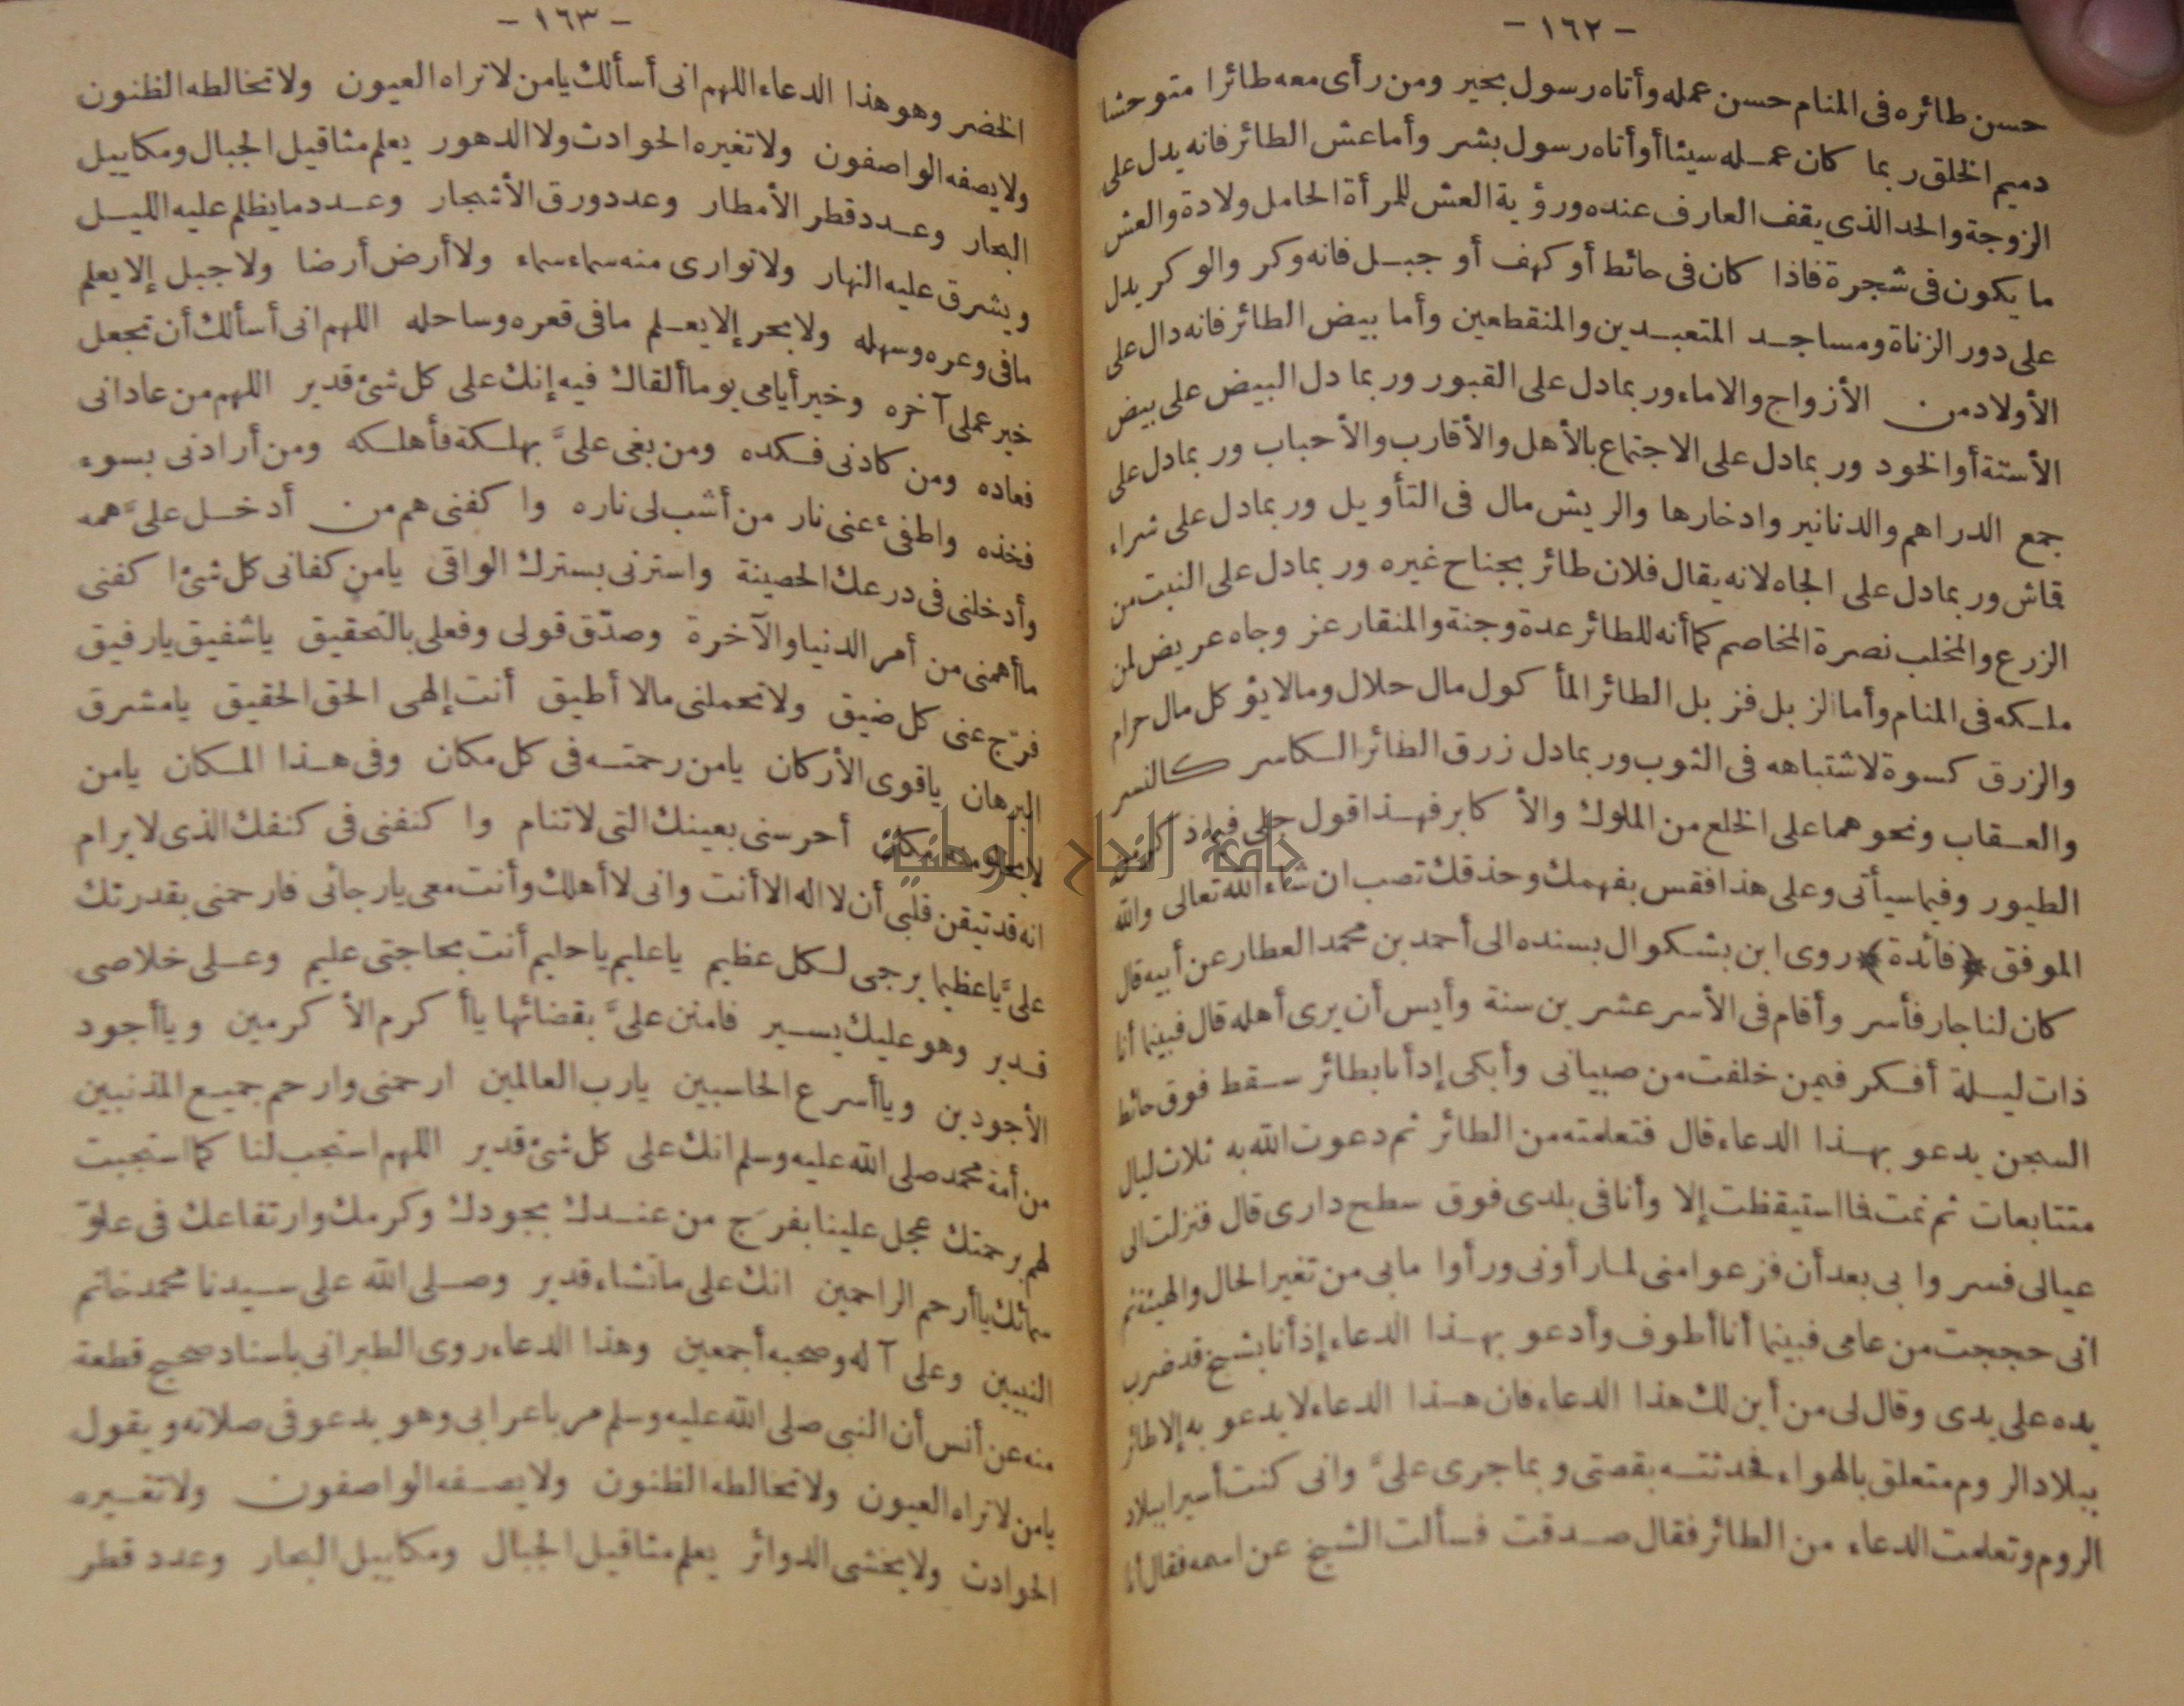 - ١٦٢ -
حسن طائره فى المنام حسن عمله وأتاه رسول بخير ومن رأى معه طائرا متوحشا
دميم الخلق ربما كان عمله سيئا أو أتاه رسول بشر وأما عش الطائر فانه يدل على
الزوجة والحد الذى يقف العارف عنده ورؤية العش للمرأة الحامل ولادة والعش
ما يكون فى شجرة فاذا كان فى حائط أو كهف أو جبل فانه وكر والوكر يدل
على دور الزناة ومساجد المتعبدين والمنقطعين وأما بيض الطائر فانه دال على
الأولاد من الأزواج والاماء وربما دل على القبور وربما دل البيض على بيض
الأسنة أو الخود وربما دل على الاجتماع بالأهل والأقارب والأحباب وربما دل على
جمع الدراهم والدنانير وادخارها والريش مال فى التأويل وربما دل على شراء
قماش وربما دل على الجاه لانه يقال فلان طائر بجناح غيره وربما دل على النبت من
الزرع والمخلب نصرة المخاصم كما أنه للطائر عدة وجنة والمنقار عز وجاه عريض لمن
ملكه فى المنام وأما الزبل فزبل الطائر المأكول مال حلال ومالا يؤكل مال حرام
والزرق كسوة لاشتباهه فى الثوب وربما دل زرق الطائر الكاسر كالنسر
والعقاب ونحوهما على الخلع من الملوك والأكابر فهذا قول جلى فيما ذكر من
الطيور وفيما سيأتى وعلى هذا فقس بفهمك وحذقك تصب ان شاء الله تعالى والله
الموفق ﴿فائدة﴾ روى ابن بشكوال بسنده الى أحمد بن محمد العطار عن أبيه قال
كان لنا جار فأسر وأقام فى الأسر عشرين سنة وأيس أن يرى أهله قال فبينما أنا
ذات ليلة أفكر فيمن خلفت من صبيانى وأبكى إذ أنا بطائر سقط فوق حائط
السجن يدعو بهذا الدعاء قال فتعلمته من الطائر ثم دعوت الله به ثلاث ليال
متتابعات ثم نمت فما استيقظت إلا وأنا فى بلدى فوق سطح دارى قال فنزلت الى
عيالى فسروا بى بعد أن فزعوا منى لما رأونى ورأوا ما بى من تغير الحال والهيئة ثم
انى حججت من عامى فبينما أنا أطوف وأدعو بهذا الدعاء إذ أنا بشيخ قد ضرب
يده على يدى وقال لى من أين لك هذا الدعاء فان هذا الدعاء لا يدعو به إلا طائر
ببلاد الروم متعلق بالهواء فحدثته بقصتى وبما جرى علىّ وانى كنت أسيرا ببلاد
الروم وتعلمت الدعاء من الطائر فقال صدقت فسألت الشيخ عن اسمه فقال أنا
- ١٦٣ -
الخضر وهو هذا الدعاء اللهم انى أسألك يامن لا تراه العيون ولا تخالطه الظنون
ولا يصفه الواصفون ولا تغيره الحوادث ولا الدهور يعلم مثاقيل الجبال ومكاييل
البحار وعدد قطر الأمطار وعدد ورق الأشجار وعدد ما يظلم عليه الليل
ويشرق عليه النهار ولا توارى منه سماء سماء ولا أرض أرضا ولا جبل إلا يعلم
مافى وعره وسهله ولا بحر إلا يعلم مافى قعره وساحله اللهم انى أسألك أن تجعل
خير عملى آخره وخير أيامى يوما ألقاك فيه إنك على كل شئ قدير اللهم من عادانى
فعاده ومن كادنى فكده ومن بغى علىّ بهلكة فأهلكه ومن أرادنى بسوء
فخذه واطفئ عنى نار من أشب لى ناره واكفنى هم من أدخل علىّ همه
وأدخلنى فى درعك الحصينة واسترنى بسترك الواقى يامن كفانى كل شئ اكفنى
ما أهمنى من أمر الدنيا والآخرة وصدّق قولى وفعلى بالتحقيق ياشفيق يارفيق
فرّج عنى كل ضيق ولا تحملنى مالا أطيق أنت إلهى الحق الحقيق يامشرق
البرهان ياقوى الأركان يامن رحمته فى كل مكان وفى هذا المكان يامن
لا يخلو منه مكان أحرسنى بعينك التى لا تنام واكنفنى فى كنفك الذى لا يرام
انه قد تيقن قلبى أن لا اله الا أنت وانى لا أهلك وأنت معى يارجائى فارحمنى بقدرتك
علىّ ياعظيما يرجى لكل عظيم ياعليم ياحليم أنت بحاجتى عليم وعلى خلاصى
قدير وهو عليك يسير فامنن علىّ بقضائها يا أكرم الأكرمين ويا أجود
الأجودين ويا أسرع الحاسبين يارب العالمين ارحمنى وارحم جميع المذنبين
من أمة محمد صلى الله عليه وسلم انك على كل شئ قدير اللهم استجب لنا كما استجبت
لهم برحمتك عجل علينا بفرَج من عندك بجودك وكرمك وارتفاعك فى علوّ
سمائك يا أرحم الراحمين انك على ما تشاء قدير وصلى الله على سيدنا محمد خاتم
النبيين وعلى آله وصحبه أجمعين وهذا الدعاء روى الطبرانى باسناد صحيح قطعة
منه عن أنس أن النبى صلى الله عليه وسلم مر باعرابى وهو يدعو فى صلاته ويقول
يامن لا تراه العيون ولا تخالطه الظنون ولا يصفه الواصفون ولا تغيره
الحوادث ولا يخشى الدوائر يعلم مثاقيل الجبال ومكاييل البحار وعدد قطر
جامعة النجاح الوطنية